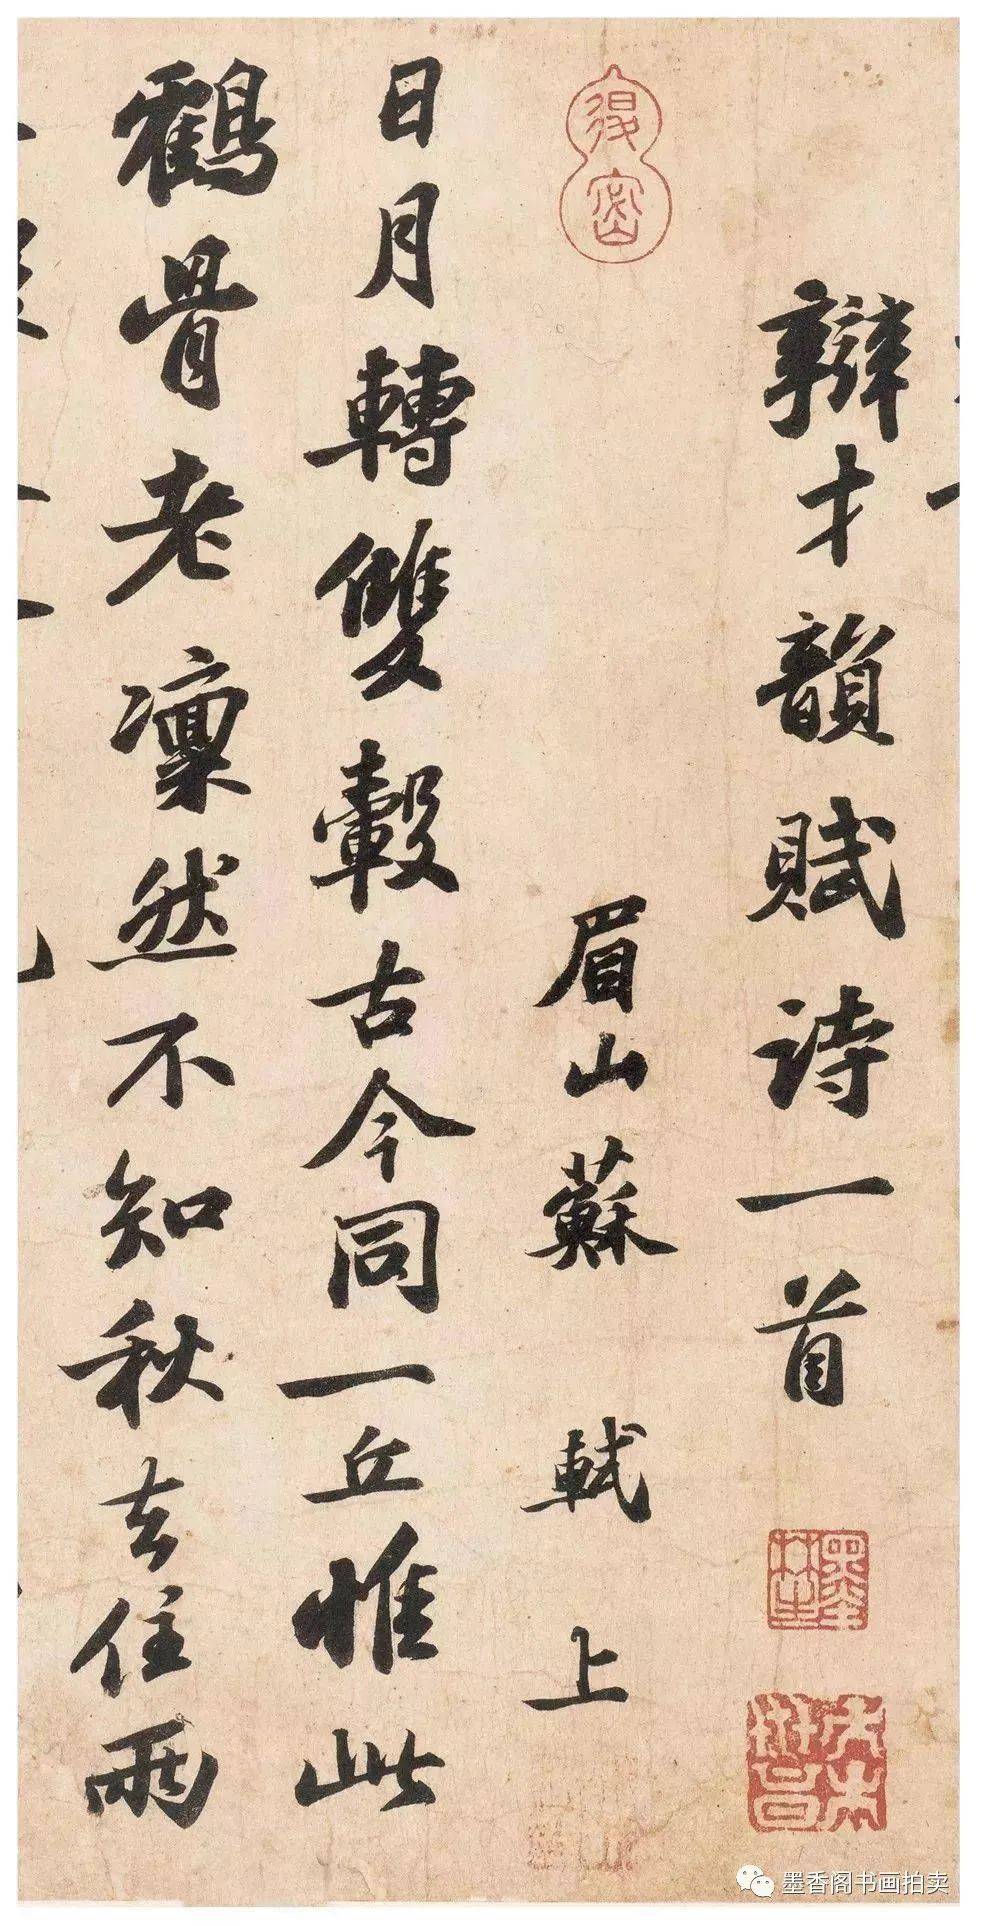 辯才韻賦詩一首
眉山蘇軾上
日月轉雙轂古今同一丘惟此
鶴骨老凜然不知秋去住兩
墨香阁书画拍卖